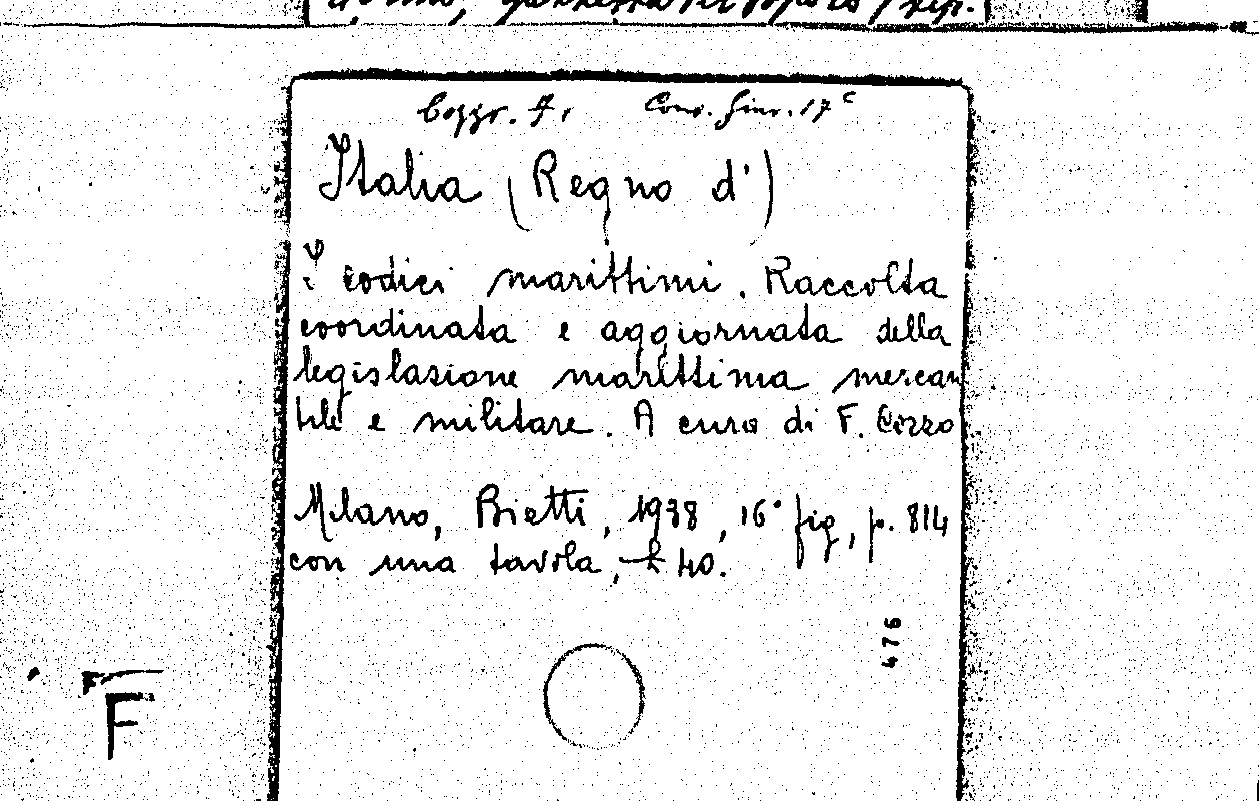 Torino, Gazzetta del popolo, tip.
Cons. Giur. 17 c
Italia (Regno d')
I codici marittimi. Raccolta
coordinata e aggiornata della
legislazione marittima mercan
tile e militare. A cura di F. Cozzo
Milano, Bietti, 1938, 16° fig, p. 814
con una tavola, £ 40.
476
F
F